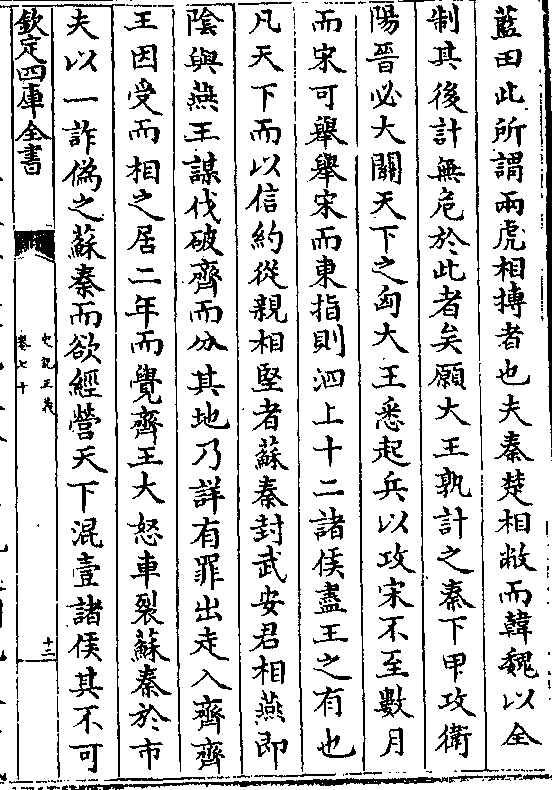 藍田此所謂兩虎相搏者也夫秦楚相敝而韓魏以全
制其後計無危於此者矣願大王孰計之秦下甲攻衛
陽晉必大關天下之匈大王悉起兵以攻宋不至數月
而宋可舉舉宋而東指則泗上十二諸侯盡王之有也
凡天下而以信約從親相堅者蘇秦封武安君相燕即
陰與燕王謀伐破齊而分其地乃詳有罪出走入齊齊
王因受而相之居二年而覺齊王大怒車裂蘇秦於市
夫以一詐偽之蘇秦而欲經營天下混壹諸侯其不可
欽定四庫全書
史記正義
卷七十
十三